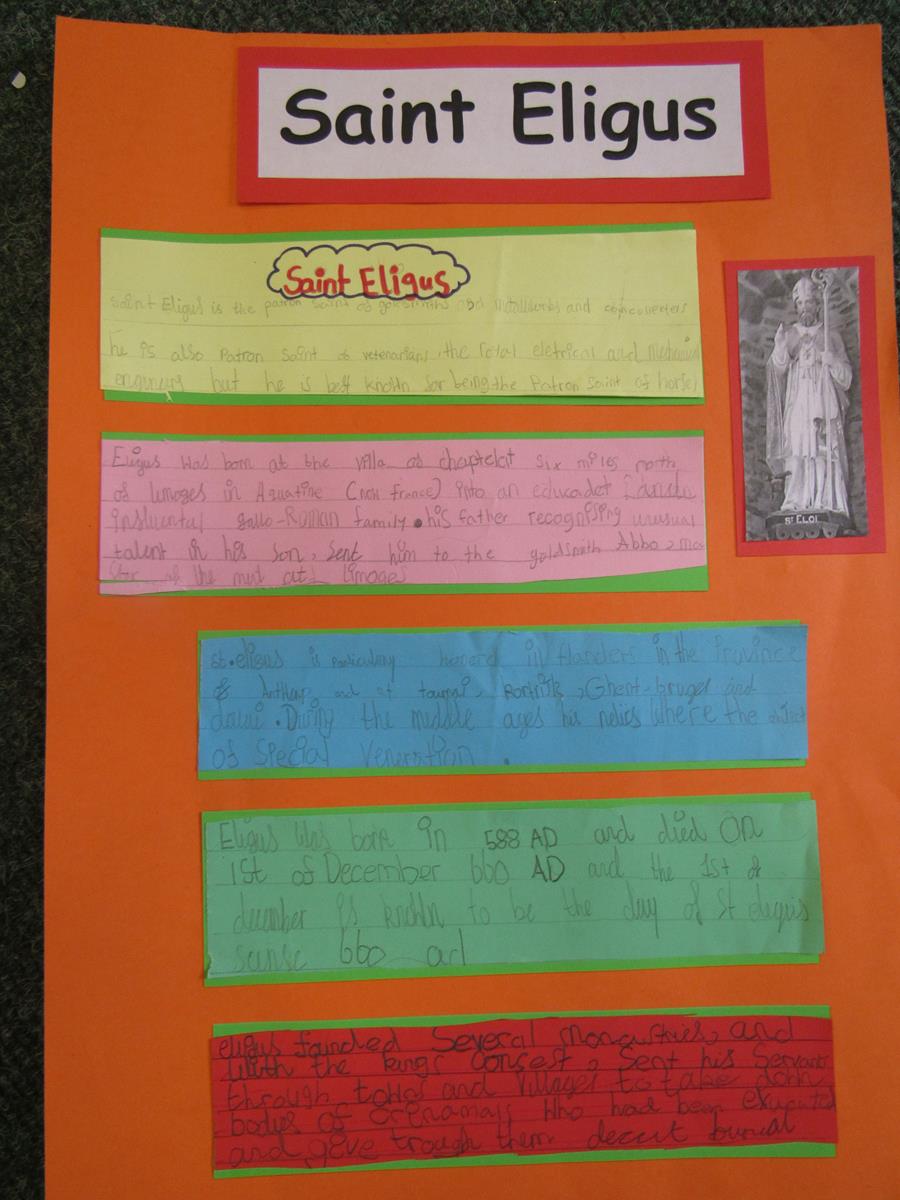 Saint Eligus
Saint Eligus
Saint Eligus is the patron saint of goldsmiths and and
he is also Patron Saint of vetenarians, the royal eletrical and mechanical
but he is best known for being the Patron Saint of horses
Eligus was born at the villa of chaptelat six miles north
of limoges in Aquatine (now france) into an educadet
influental gallo-Roman family. his father recognising unusual
talent in his son, sent him to the goldsmith Abbo, ma
of the mint at limoges
ST ELOI
st. eligus is particulary honerd in flanders in the Province
of and of tournai, kortrijk, Ghent-bruges and
douai. During the middle ages his relics where the object
of special veneration.
Eligus was born in 588 AD and died on
1st of December 660 AD and the 1st of
december is known to be the day of St eleguis
660
eligus founded Several monastries, and
with the kings consest, sent his Servants
through towns and villages to take down
bodys of who had been executed
and give trough them decent burial